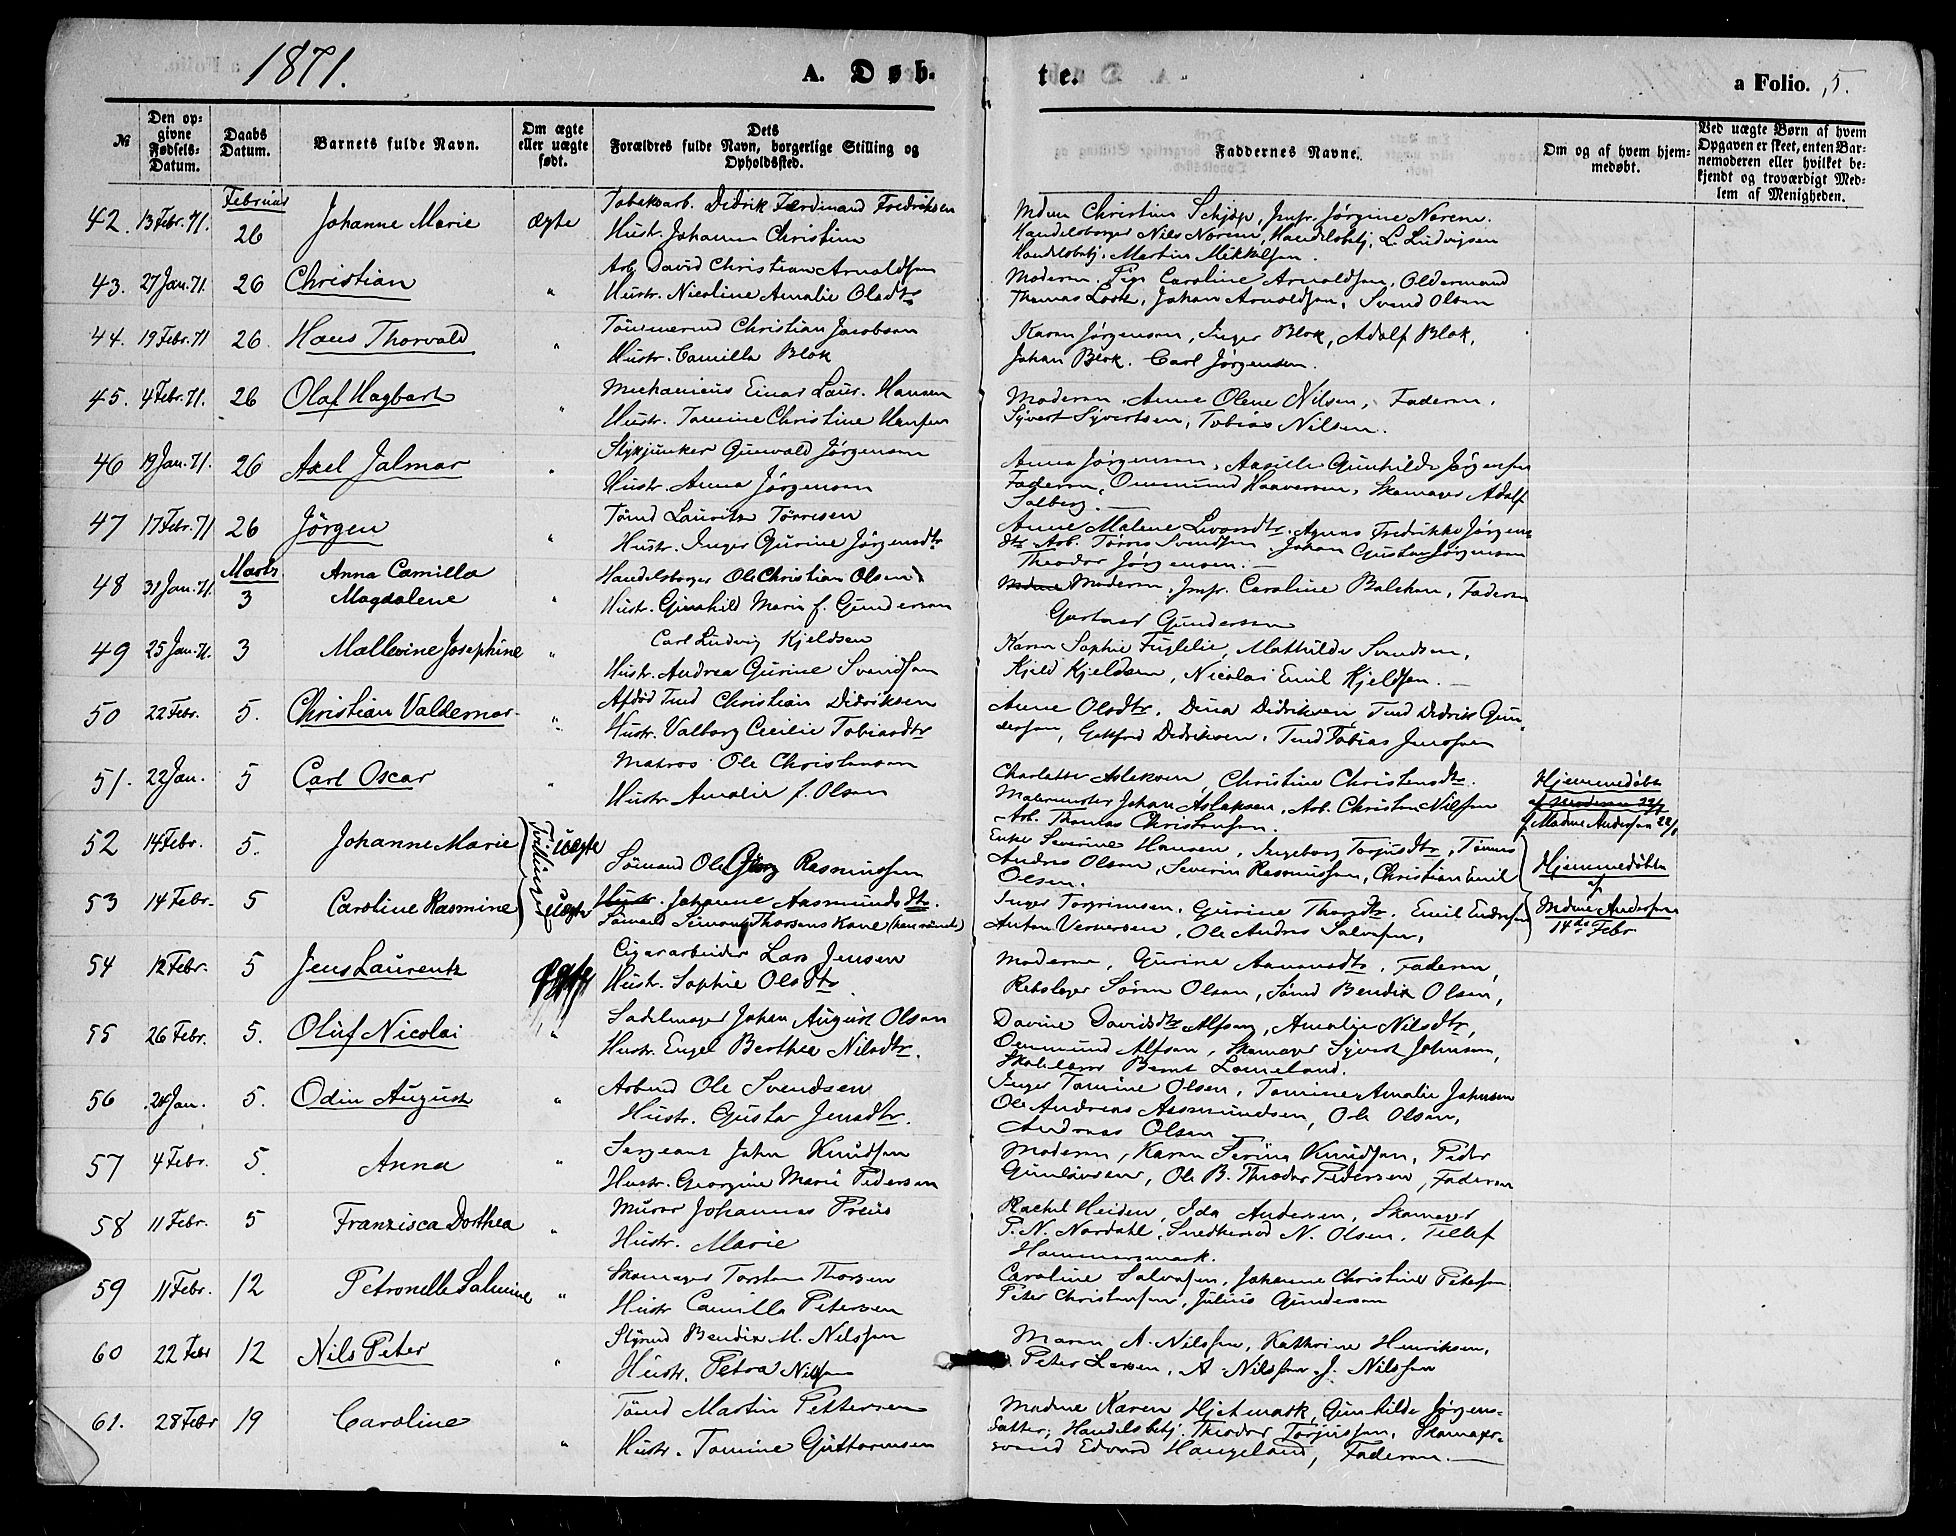 1871.
A. Døb-
te.
a Folio. 5.
№
Den opgivne Fødsels-Datum.
Daabs Datum.
Barnets fulde Navn.
Om ægte eller uægte født.
Dets Forældres fulde Navn, borgerlige Stilling og Opholdssted.
Faddernes Navne.
Om og af hvem hjemmedøbt.
Ved uægte Børn af hvem Opgaven er skeet, enten Barnemoderen eller hvilket bekjendt og troværdigt Medlem af Menigheden.
Februar
42. 13 Febr. 71. 26 Johanne Marie ægte Tobaksarb. Didrik Ferdinand Fredriksen
Hustr. Johanne Christine
Mdme Christine Schjöp, Jmfr. Jørgine Norem.
Handelsborger Nils Norem, Handelsbetj. L. Ludvigsen
Handelsbetj. Martin Mikkelsen.
43. 27 Jan. 71. 26 Christian " Arb. David Christian Arnoldsen
Hustr. Nicoline Amalie Olsdtr
Moderen, Pige Caroline Arnoldsen, Oldermand
Thomas Loste, Johan Arnoldsen, Svend Olsen
44. 19 Febr. 71 26. Hans Thorvald " Tömmermd Christian Jacobsen
Hustr. Camilla Blok
Karen Jørgensen, Inger Blok, Adolf Blok,
Johan Blok. Carl Jørgensen.
45. 4 Febr. 71. 26 Olaf Hagbart " Mechanicus Einar Laur. Hansen
Hustr. Tomine Christine Hansen
Moderen, Anne Olene Nilsen, Faderen,
Syvert Syvertsen, Tobias Nilsen.
46 19 Jan. 71. 26 Axel Jalmar " Stykjunker Gunvald Jørgensen
Hustr. Anna Jørgensen
Anna Jørgensen, Aasille Gunhilde Jørgensen
Faderen, Ommund Haaversen, Skomager Adolf
Solberg.
47 17 Febr. 71 26 Jörgen " Tömd Lauritz Törresen
Hustr. Inger Gurine Jørgensdtr
Anne Malene Iversdtr, Agnes Fredrikke Jørgens
dtr Arb. Tørres Svendsen, Johan Gustav Jørgensen
Theodor Jørgensen.
Marts
48 31 Jan. 71. 3 Anna Camilla Magdalene " Handelsborger Ole Christian Olsen
Hustr. Gunhild Marie f. Gundersen
Moderen, Jmfr. Caroline Balchen, Faderen
Gartner Gundersen
49 25 Jan. 71. 3 Mallevine Josephine " Carl Ludvig Kjeldsen
Hustr. Andrea Gurine Svendsen
Karen Sophie Fuglelie, Mathilde Svendsen,
Kjeld Kjeldsen, Nicolai Emil Kjeldsen.
50 22 Febr. 5. Christian Valdemar " Afdöd Tmd Christian Didriksen
Hustr. Valborg Cecilie Tobiasdtr
Anne Olsdtr, Dina Didriksen, Tmd Didrik Gun-
dersen, Gottfred Didriksen, Tmd Tobias Jensen
51. 22 Jan. 5 Carl Oscar " Matros Ole Christensen
Hustr Amalie f. Olsen
Charlotte Aslaksen, Christine Christensdtr.
Malermester Johan Aslaksen, Arb. Christen Nilsen
Arb. Thomas Christensen.
Hjemmedøbt
af Moderen 22/1
f Madme Andersen 22/1
52 14 Febr. 5. Johanne Marie Tvillinger uægte Sömand Ole Georg Rasmussen
Enke Severine Hansen, Ingeborg Torjusdtr, Tömmr
Andres Olsen, Severin Rasmussen, Christian Emil
Olsen.
Hjemmedøbt
af
Mdme Andersen
14de Febr
53 14 Febr. 5 Caroline Rasmine uægte Hustr. Johanne Aasmundsdtr.
Sömand Simon Thorsens Kone
Inger Torgrimsen, Gurine Thorsdtr, Emil Endresen
Anton Vernersen, Ole Andres Salvesen,
54 12 Febr. 5 Jens Laurentz ægte Cigararbeider Lars Jensen
Hustr. Sophie Olsdtr
Moderen, Gurine Aanensdtr, Faderen,
Rebslager Sören Olsen, Sömd Bendix Olsen,
55 26 Febr. 5. Oluf Nicolai " Sadelmager Johan August Olsen
Hustr. Engel Berthea Nilsdtr.
Davine Davidsdtr Alfsen, Amalie Nilsdtr,
Ommund Alfsen, Skomager Syvert Johnsen,
Skolelærer Bernt Lomeland.
56 24 Jan. 5. Odin August " Arbmd Ole Svendsen
Hustr. Gustav Jensdtr.
Inger Tomine Olsen, Tomine Amalie Johnsen
Ole Andreas Aasmundsen, Ole Olsen,
Andreas Olsen
57 4 Febr. 5. Anna " Sergeant John Knudsen
Hustr. Georgine Marie Pedersen
Moderen, Karen Serine Knudsen, Peder
Gundersen, Ole B. Theodor Pedersen, Faderen
58 11 Febr. 5 Franzisca Dorthea " Murer Johannes Preus
Hustr. Marie
Rachel Heiden, Ida Andersen, Skomager
P. N. Nordahl, Snedkersvd N. Olsen, Tellef
Hammersmark.
59 11 Febr. 12 Petronelle Salmine " Skomager Torsten Thorsen
Hustr Camilla Petersen
Caroline Salvesen, Johanne Christine Petersen
Peter Christensen, Julius Gundersen
60 22 Febr 12 Nils Peter " Styrmd Bendix M. Nilssen
Hustr. Petra Nilssen
Maren A. Nilssen, Kathrine Henriksen,
Peter Larsen, A. Nilssen, J. Nilssen
61. 28 Febr 19 Caroline " Tömd Martin Pettersen
Hustr. Tomine Guttormsen
Madme Karen Hjelmark, Gunhilde Jørgens-
datter, Handelsbetj. Theodor Torjussen, Skomager-
svend Edvard Haugeland, Faderen.